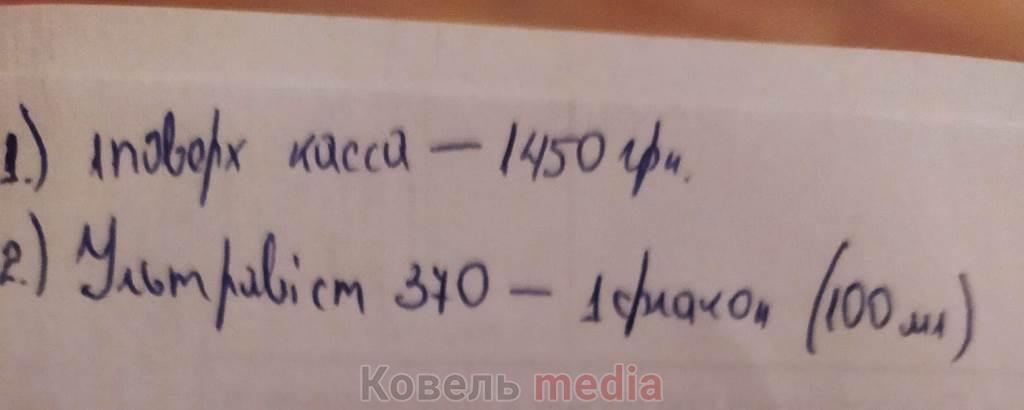 1.) 1 поверх касса – 1450 грн.
2.) Ультравіст 370 – 1 флакон (100 мл)
Ковель media